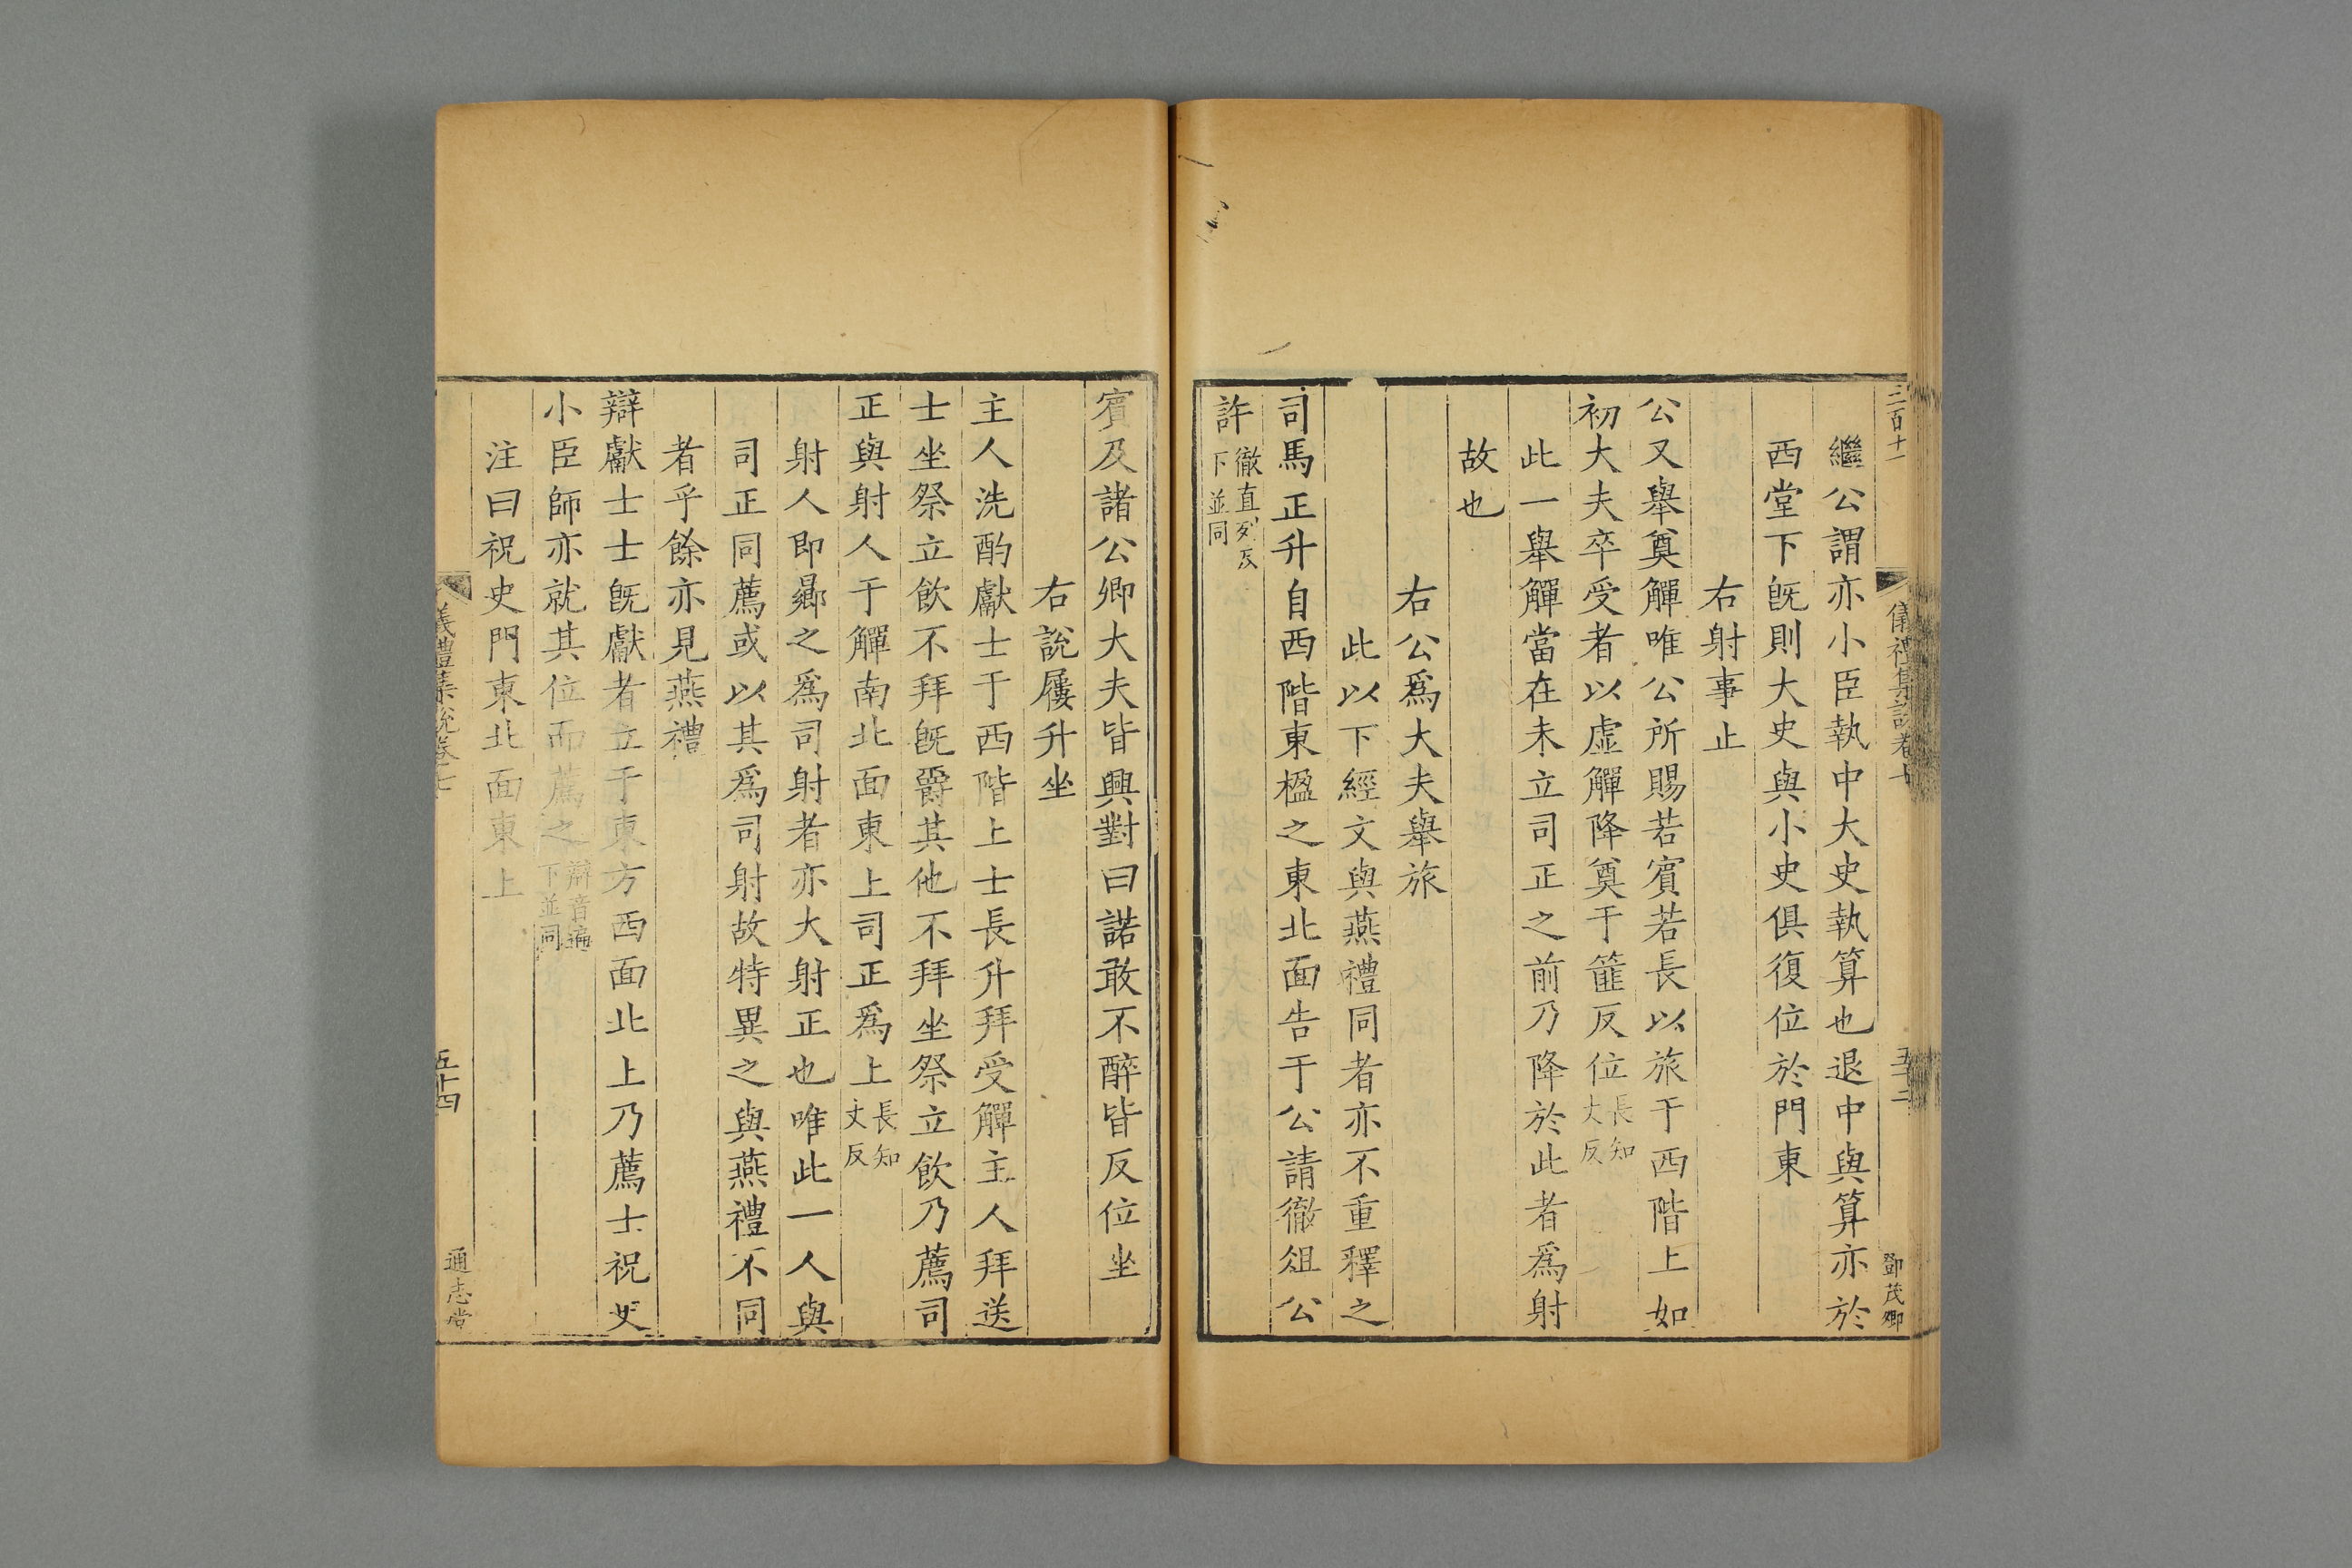 三百十一
儀禮集說卷七
鄧茂卿
繼公謂亦小臣執中大史執算也退中與算亦於
西堂下旣則大史與小史俱復位於門東
右射事止
公又舉奠觶唯公所賜若賓若長以旅于西階上如
初大夫卒受者以虛觶降奠于篚反位長知丈反
此一舉觶當在未立司正之前乃降於此者爲射
故也
右公爲大夫舉旅
此以下經文與燕禮同者亦不重釋之
司馬正升自西階東楹之東北面告于公請徹俎公
許徹直列反下並同
賓及諸公卿大夫皆興對曰諾敢不醉皆反位坐
右說屨升坐
主人洗酌獻士于西階上士長升拜受觶主人拜送
士坐祭立飲不拜旣爵其他不拜坐祭立飲乃薦司
正與射人于觶南北面東上司正爲上長知丈反
射人即曏之爲司射者亦大射正也唯此一人與
司正同薦或以其爲司射故特異之與燕禮不同
者乎餘亦見燕禮
辯獻士士旣獻者立于東方西面北上乃薦士祝史
小臣師亦就其位而薦之辯音遍下並同
注曰祝史門東北面東上
儀禮集說卷七
五十四
通志堂